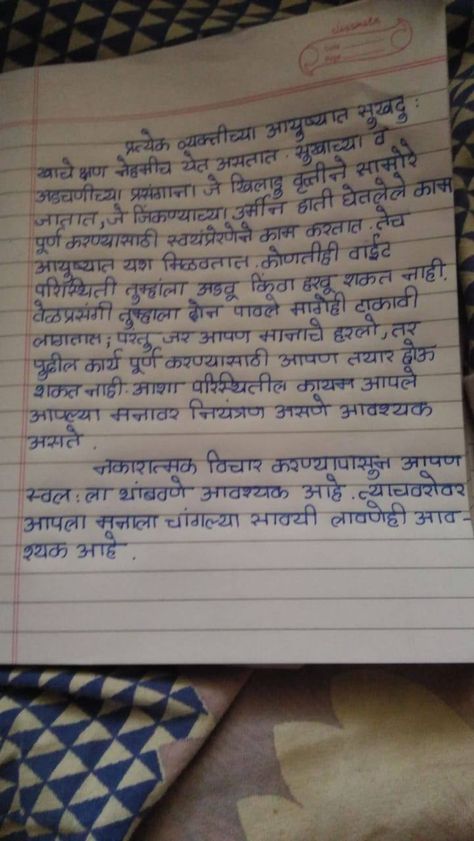 classmate
Date
Page
प्रत्येक व्यक्तीच्या आयुष्यात सुखदु:
खाचे क्षण नेहमीच येत असतात. सुखाच्या व
अडचणीच्या प्रसंगाना जे खिलाडु वृत्तीने सामोरे
जातात, जे जिंकण्याच्या उर्मीन हाती घेतलेले काम
पूर्ण करण्यासाठी स्वयंप्रेरणेने काम करतात. तेच
आयुष्यात यश मिळवतात. कोणतीही वाईट
परिस्थिती तुम्हांला अडवू किंवा हरवू शकत नाही.
वेळप्रसंगी तुम्हाला दोन पावले मागेही टाकावी
लागतात; परंतु जर आपण मानाचे हरलो, तर
पुढील कार्य पूर्ण करण्यासाठी आपण तयार होऊ
शकत नाही. आशा परिस्थितील कायम आपले
आपल्या मनावर नियंत्रण असणे आवश्यक
असते.
नकारात्मक विचार करण्यापासुन आपण
स्वत: ला थांबवणे आवश्यक आहे. त्याचबरोबर
आपला मनाला चांगल्या सावयी लावणेही आव-
श्यक आहे.